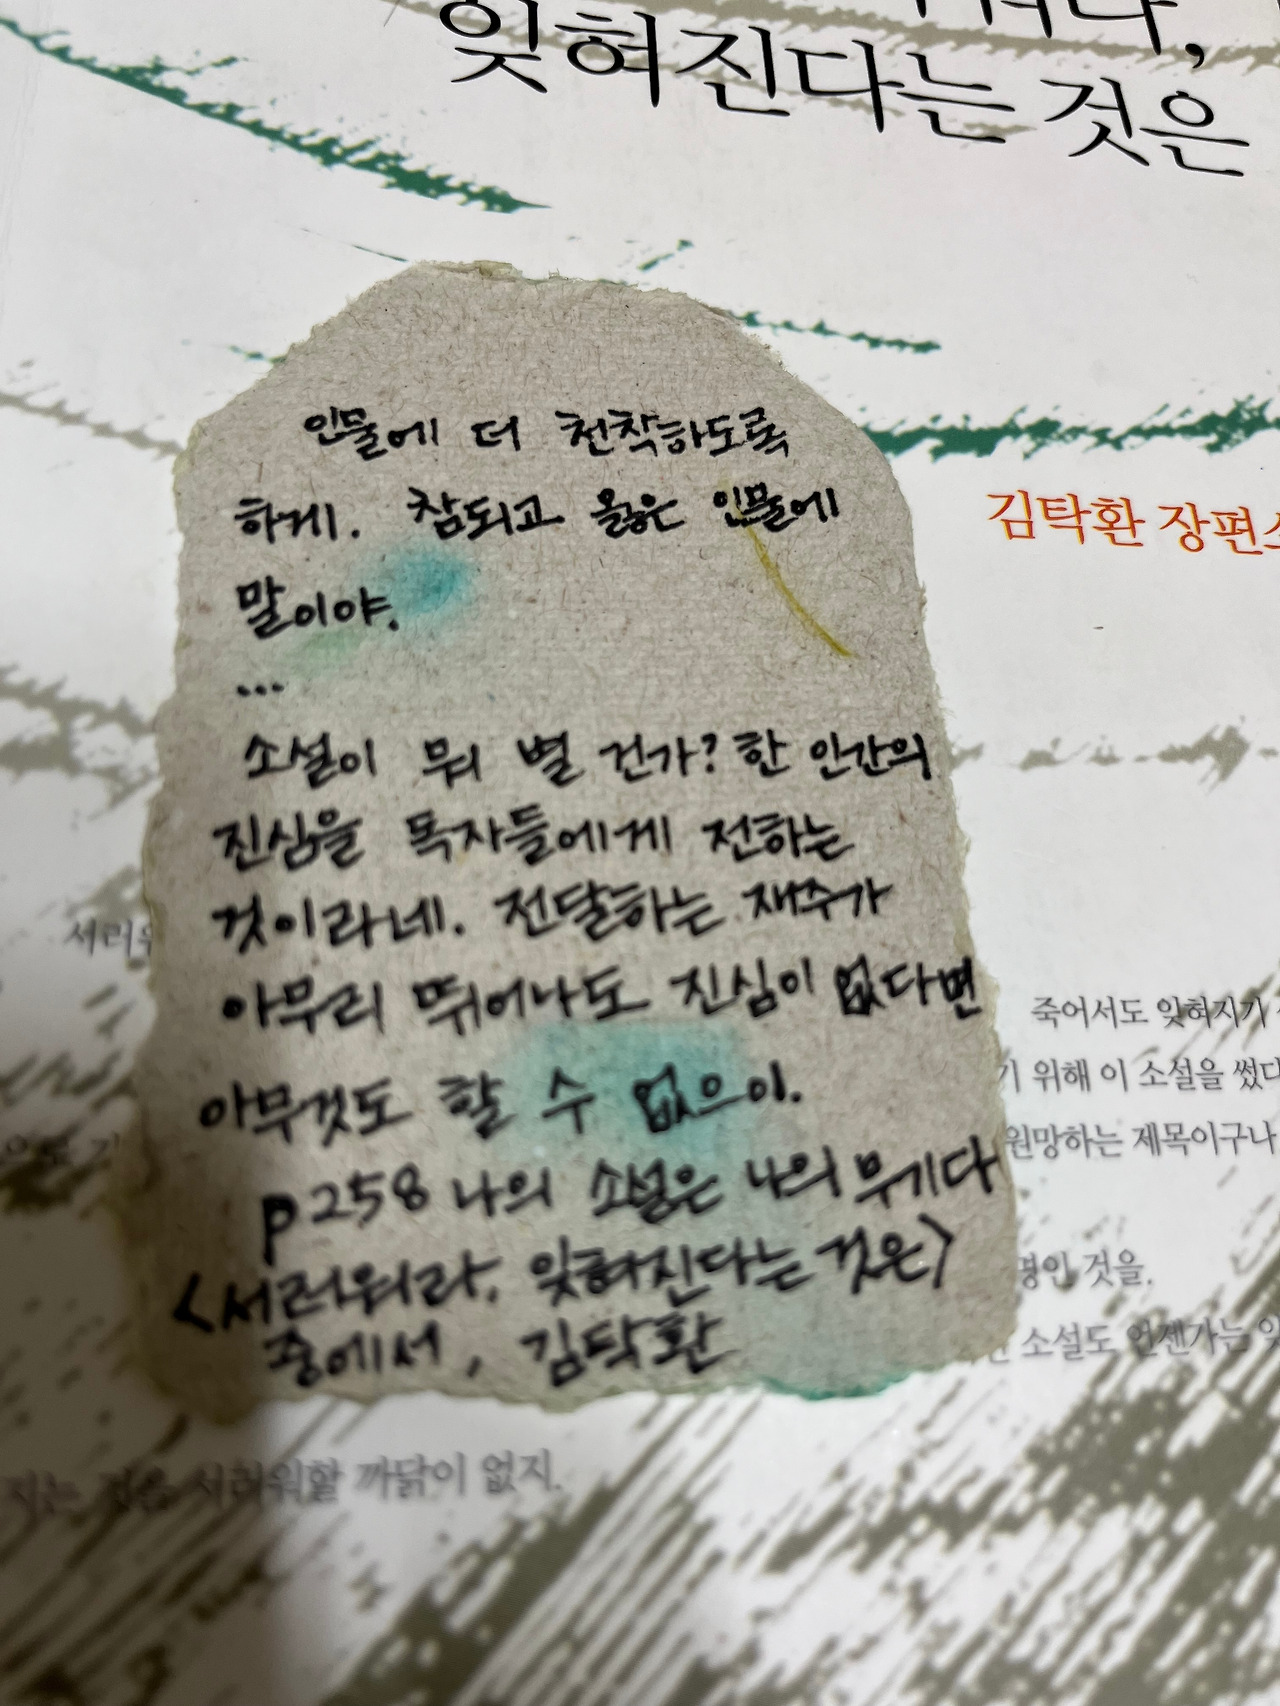 잊혀진다는 것은
김탁환 장편
인물에 더 천착하도록
하게. 참되고 옳은 인물에
말이야.
...
소설이 뭐 별 건가? 한 인간의
진심을 독자들에게 전하는
것이라네. 전달하는 재주가
아무리 뛰어나도 진심이 없다면
아무것도 할 수 없으이.
p258 나의 소설은 나의 무기다
<서러워라, 잊혀진다는 것은>
중에서, 김탁환
죽어서도 잊혀지기
위해 이 소설을 썼다
원망하는 제목이구나
것을.
소설도 언젠가는
지는 것을 서러워할 까닭이 없지.